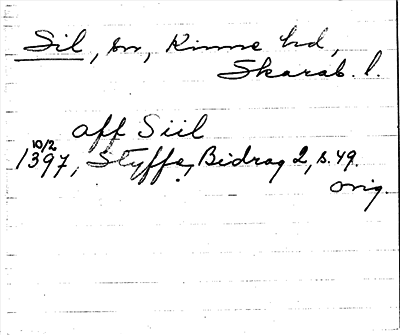 Sil, sn, Kinne hd,
Skarab. l.
aff Siil
10/2
1397, Styffe, Bidrag 2, s. 49.
orig.